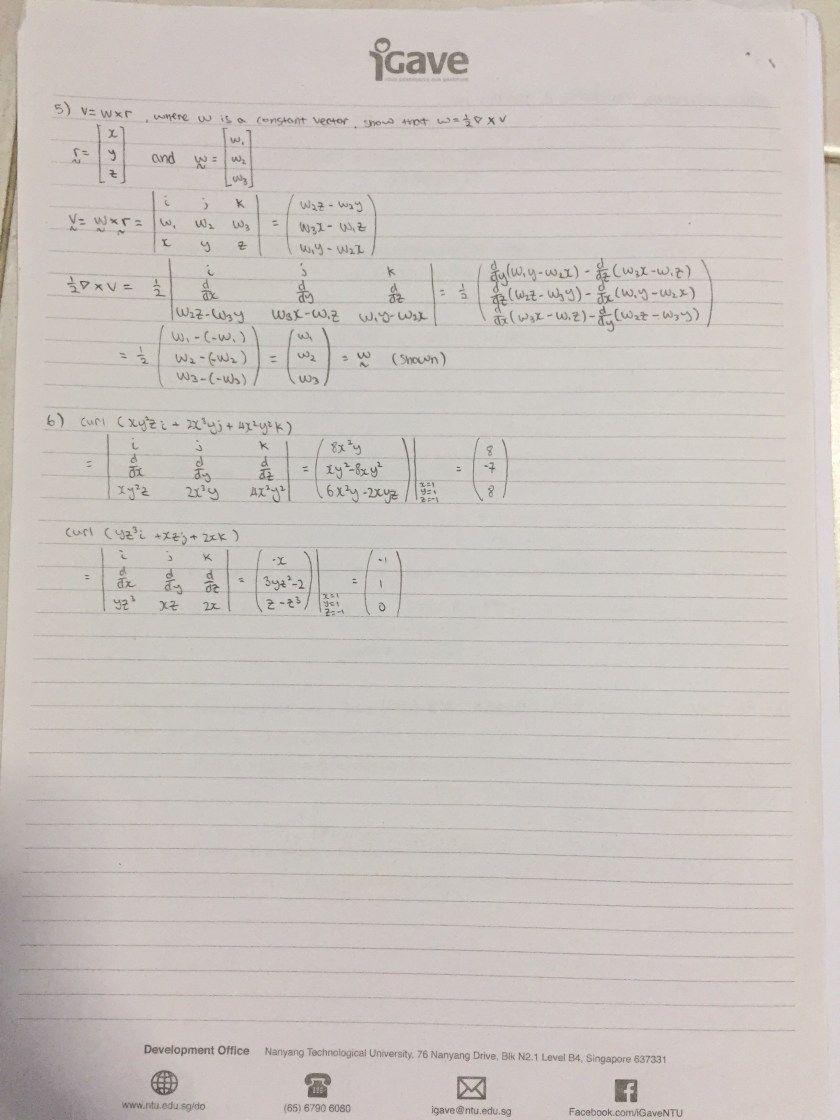 iGave
5) V = w x r , where w is a constant vector, show that w = ½ ∇ x V
r = [x y z] and w = [w₁ w₂ w₃]
V = w x r = | i j k | = ( w₂z - w₃y )
| w₁ w₂ w₃ | ( w₃x - w₁z )
| x y z | ( w₁y - w₂x )
½ ∇ x V = ½ | i j k | = ½ ( d/dy (w₁y - w₂x) - d/dz (w₃x - w₁z) )
| d/dx d/dy d/dz | ( d/dz (w₂z - w₃y) - d/dx (w₁y - w₂x) )
| w₂z - w₃y w₃x - w₁z w₁y - w₂x | ( d/dx (w₃x - w₁z) - d/dy (w₂z - w₃y) )
= ½ ( w₁ - (-w₁) ) = ( w₁ ) = w (shown)
( w₂ - (-w₂) ) ( w₂ )
( w₃ - (-w₃) ) ( w₃ )
6) curl (xy²z i + 2x³y j + 4x²y² k)
= | i j k | = ( 8x²y ) = ( 8 )
| d/dx d/dy d/dz | ( xy² - 8xy² ) ( -7 )
| xy²z 2x³y 4x²y² | ( 6x²y - 2xyz ) | x=1 y=1 z=-1 ( 8 )
curl (yz³ i + xz j + 2x k)
= | i j k | = ( -x ) = ( -1 )
| d/dx d/dy d/dz | ( 3yz² - 2 ) ( 1 )
| yz³ xz 2x | ( z - z³ ) | x=1 y=1 z=-1 ( 0 )
Development Office Nanyang Technological University, 76 Nanyang Drive, Blk N2.1 Level B4, Singapore 637331
www.ntu.edu.sg/do (65) 6790 6080 igave@ntu.edu.sg Facebook.com/iGaveNTU